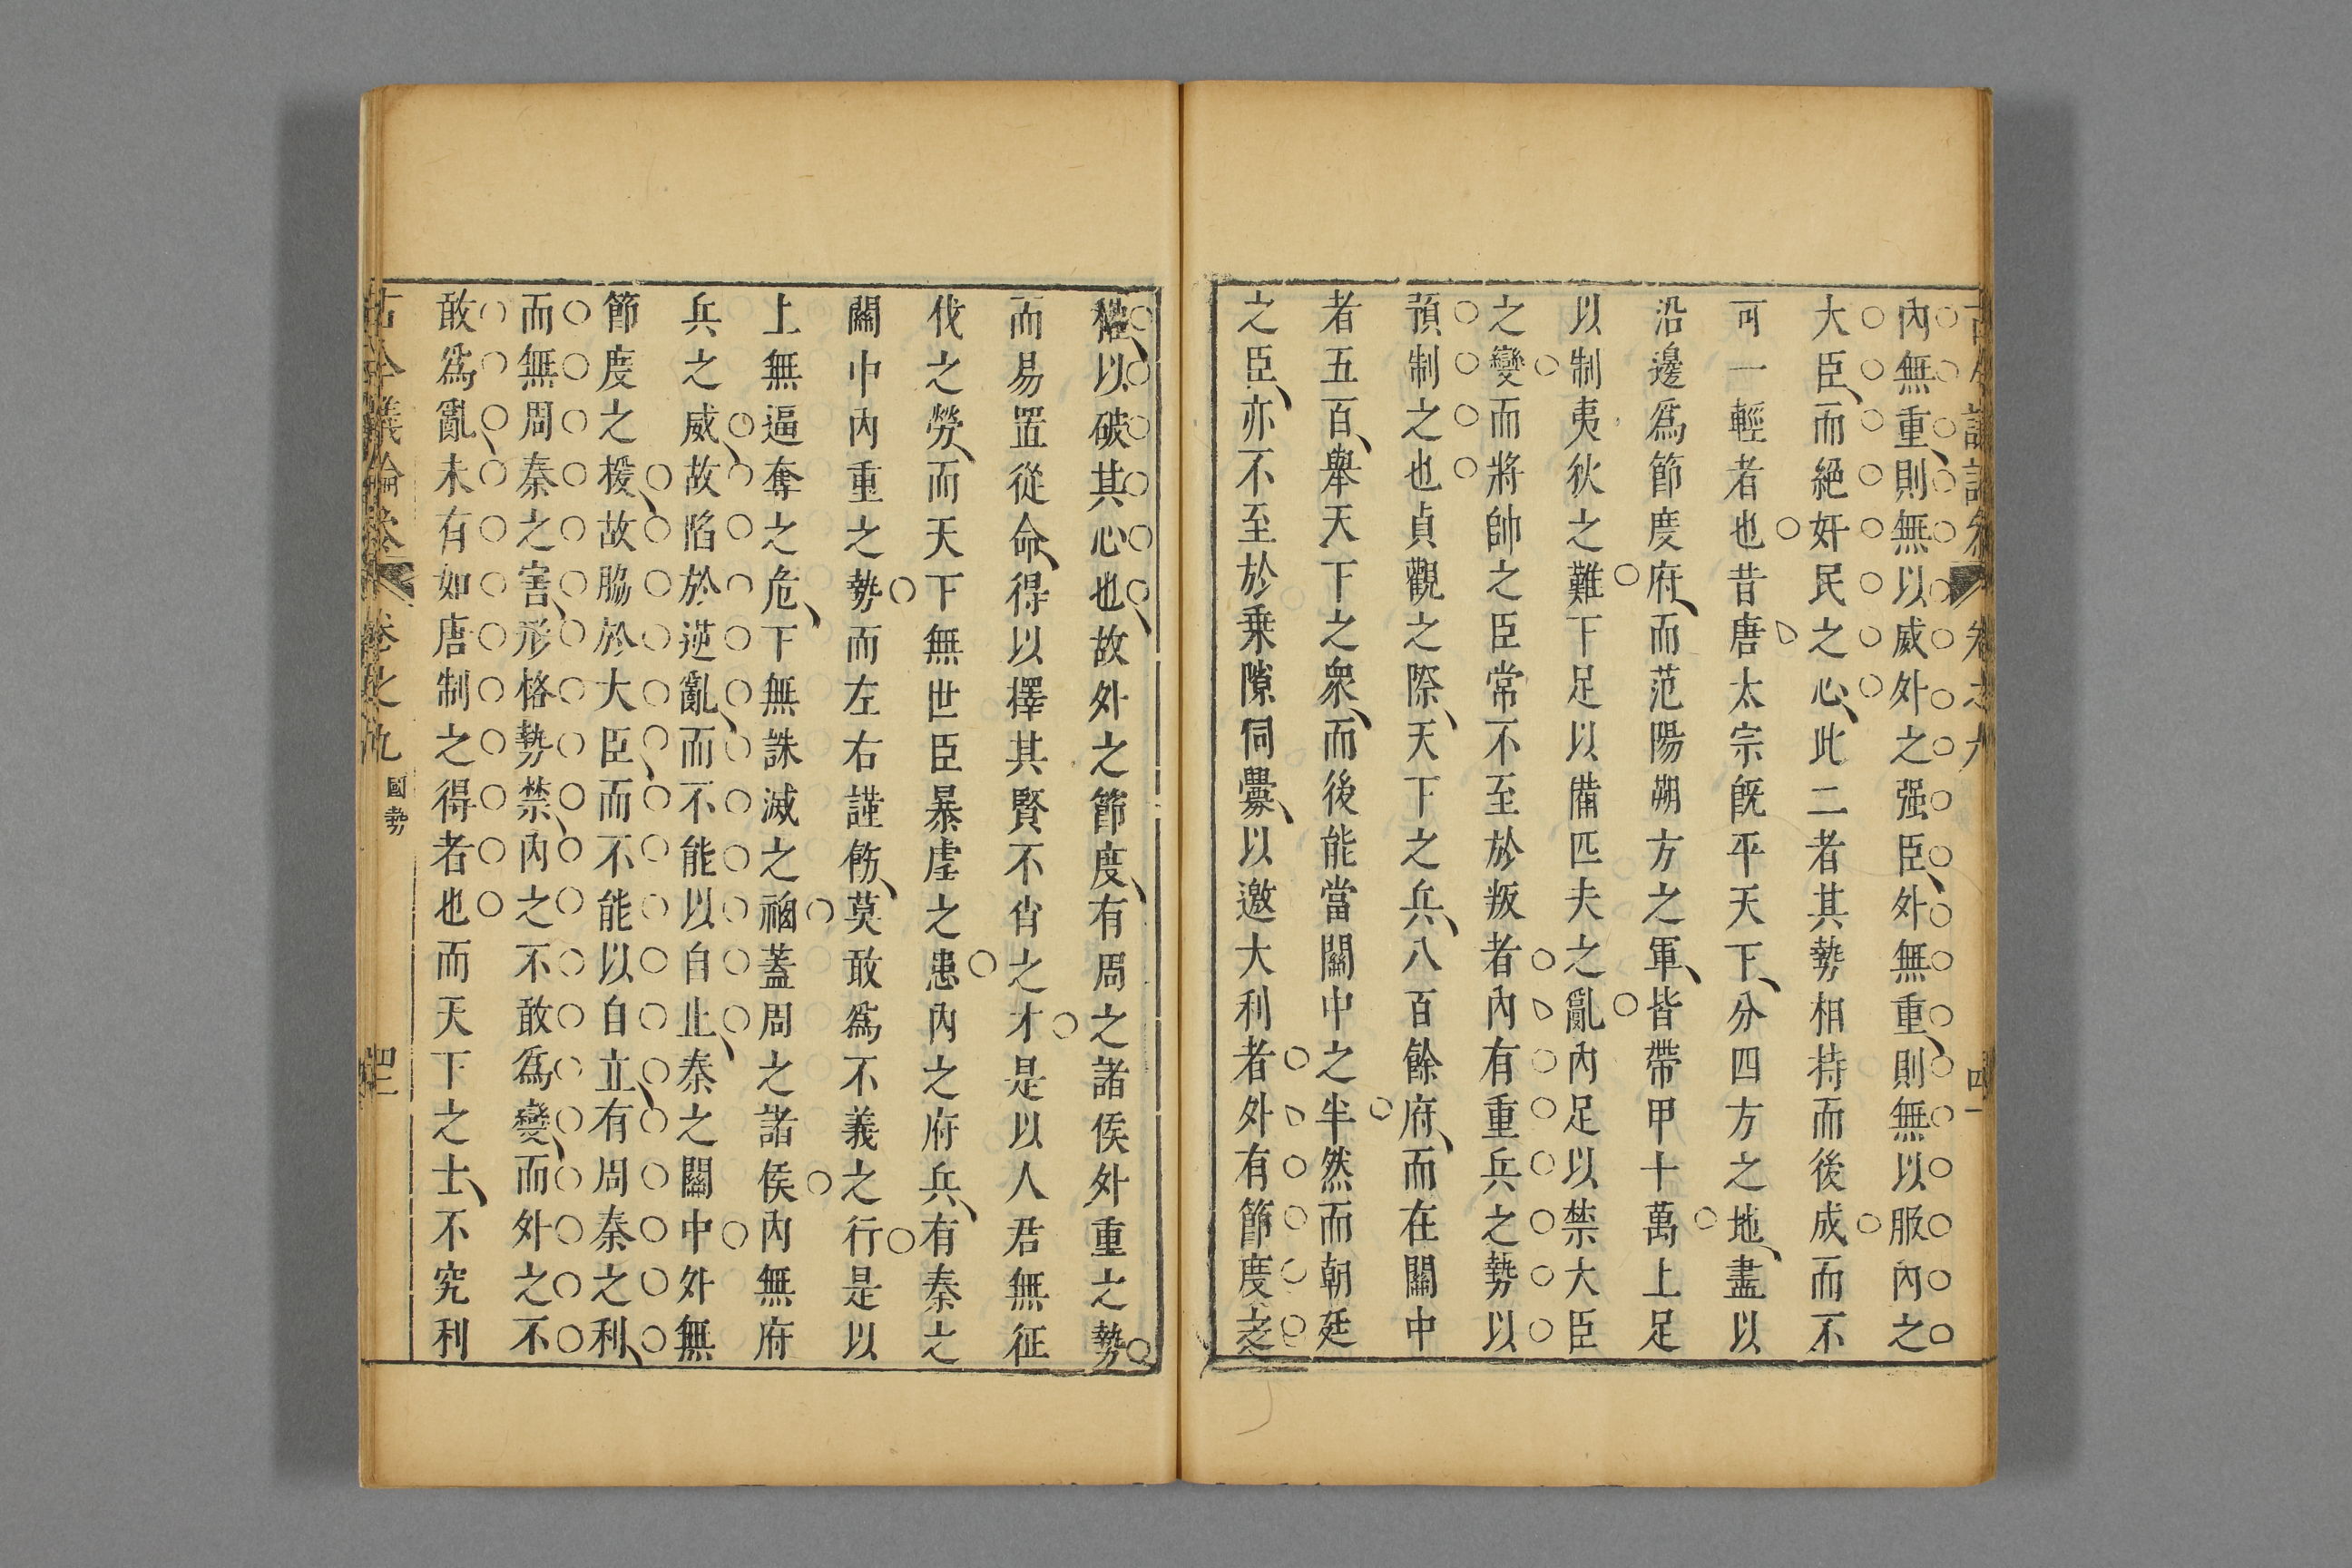 內無重則無以威外之强臣外無重則無以服內之
大臣而絕奸民之心此二者其勢相持而後成而不
可一輕者也昔唐太宗旣平天下分四方之地盡以
沿邊爲節度府而范陽朔方之軍皆帶甲十萬上足
以制夷狄之難下足以備匹夫之亂內足以禁大臣
之變而將帥之臣常不至於叛者內有重兵之勢以
預制之也貞觀之際天下之兵八百餘府而在關中
者五百舉天下之衆而後能當關中之半然而朝廷
之臣亦不至於乗隙伺釁以邀大利者外有節度之
權以破其心也故外之節度有周之諸侯外重之勢
而易置從命得以擇其賢不肖之才是以人君無征
伐之勞而天下無世臣暴虐之患內之府兵有秦之
關中內重之勢而左右謹飭莫敢爲不義之行是以
上無逼奪之危下無誅滅之禍蓋周之諸侯內無府
兵之威故陷於逆亂而不能以自止秦之關中外無
節度之援故脇於大臣而不能以自立有周秦之利
而無周秦之害形格勢禁內之不敢爲變而外之不
敢爲亂未有如唐制之得者也而天下之士不究利
古今議論參 卷之九 國勢 四二